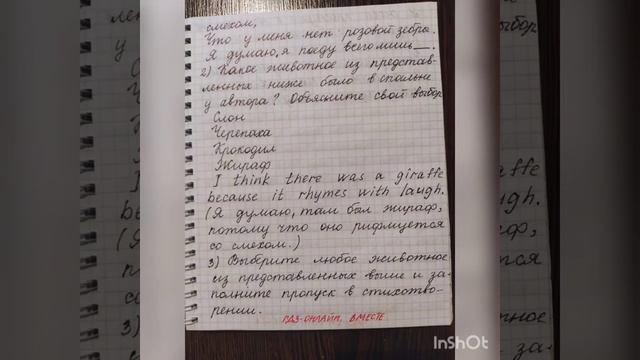 смехом,
Что у меня нет розовой зебры.
Я думаю, я пойду всего лишь __.
2) Какое животное из представ-
ленных ниже было в спальне
у автора? Объясните свой выбор.
Слон
Черепаха
Крокодил
Жираф
I think there was a giraffe
because it rhymes with laugh.
(Я думаю, там был жираф,
потому что оно рифмуется
со смехом.)
3) Выберите любое животное
из представленных выше и за-
полните пропуск в стихотво-
рении.
ГДЗ-ОНЛАЙН ВМЕСТЕ
InShOt